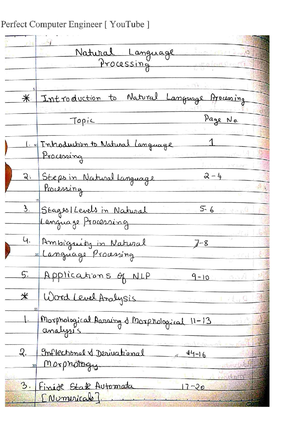 Perfect Computer Engineer [ YouTube ]
Natural Language
Processing
* Introduction to Natural Language Processing
Topic Page No
1. Introduction to Natural Language 1
Processing
2. Steps in Natural Language 2-4
Processing
3. Stages/Levels in Natural 5-6
Language Processing
4. Ambiguity in Natural 7-8
Language Processing
5. Applications of NLP 9-10
* Word Level Analysis
1. Morphological Parsing & Morphological 11-13
analysis
2. Inflectional & Derivational 14-16
Morphology
3. Finite State Automata 17-20
[Numericals]